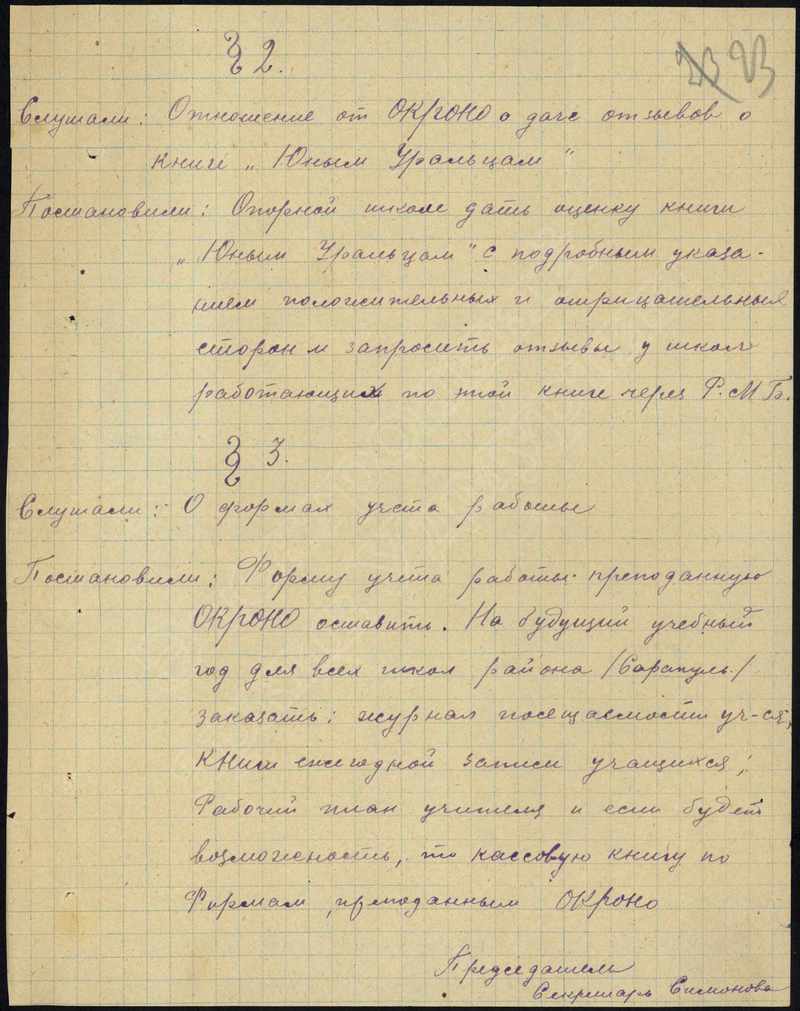 23 23
§ 2.
Слушали: Отношение от ОКРОНО о даче отзывов о
книге „Юным Уральцам"
Постановили: Опорной школе дать оценку книги
„Юным Уральцам" с подробным указа-
нием положительных и отрицательных
сторон и запросить отзывы у школ
работающих по этой книге через Р.М.Б.
§ 3.
Слушали: О формах учета работы
Постановили: Форму учета работы преподанную
ОКРОНО оставить. На будущий учебный
год для всех школ района /Сарапуль/
заказать: журнал посещаемости уч-ся,
книги ежегодной записи учащихся;
Рабочий план учителя и если будет
возможность, то кассовую книгу по
Формам, преподанным ОКРОНО
Председатель
Секретарь Симонова